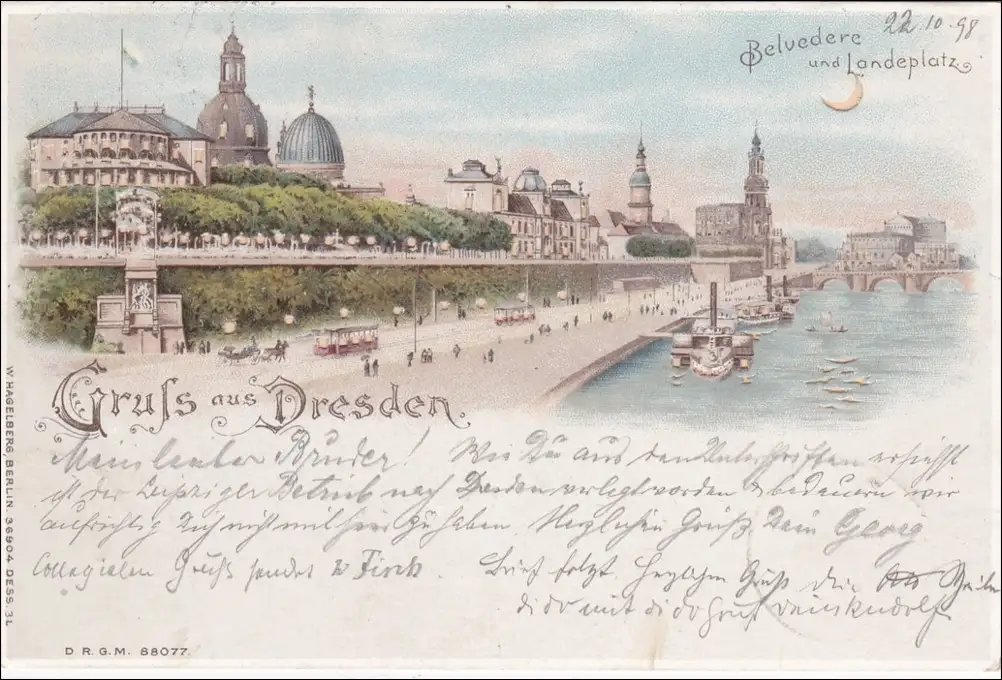 22.10.98
Belvedere
und Landeplatz.
Gruss aus Dresden.
Bruder! Wie Du aus den Unterschriften ersiehst
ist der Leipziger Betrieb nach Dresden verlegt worden & bedauern wir
aufrichtig Dich nicht mit hier zu haben. Herzlichen Gruß Dein Georg
Collegialen Gruß sendet
Brief folgt. Herzlichen Gruß
dido mit dido Gruß dein Rudolf
W. HAGELBERG, BERLIN. 36904 DESS. 3L
D. R. G. M. 88077.